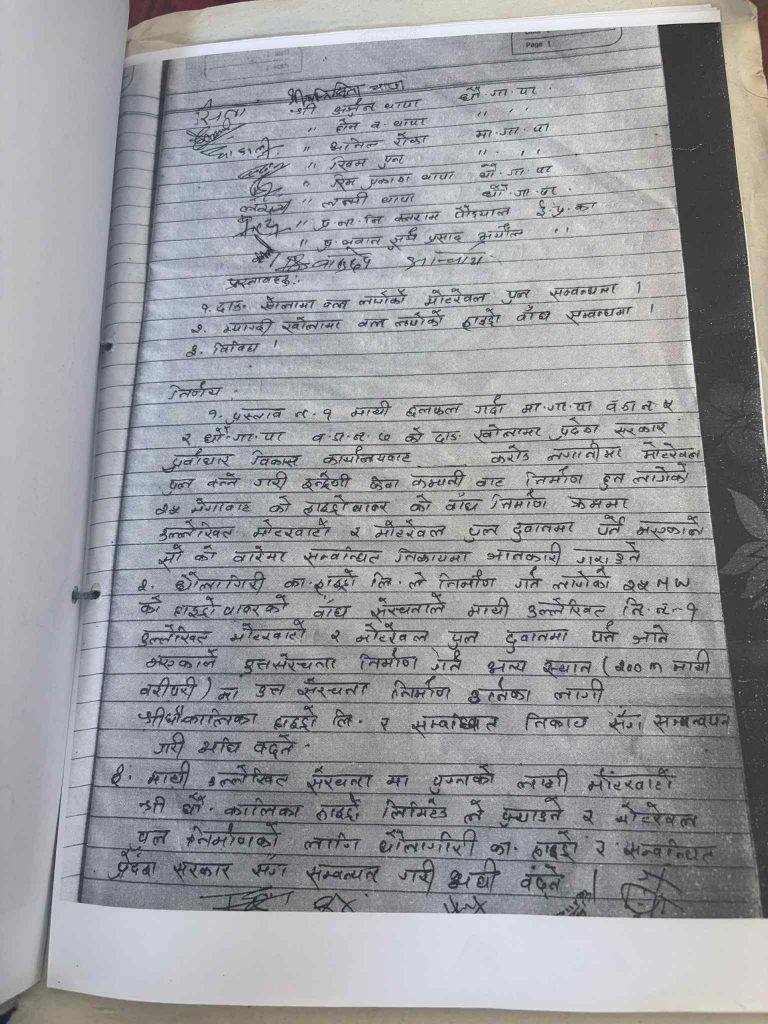 Page 1
श्री थापा धौ. गा. पा.
श्री अर्जुन थापा " " "
" होम व. थापा मा. गा. पा
" अनिल रोका " " "
" खिम पुन
" रिम प्रकाश थापा धौ. गा. पा
" लक्ष्मी थापा धौ. गा. पा.
" प्र. ना. नि वलराम पौड्याल ई. प्र. का
" प्र. जवान सूर्य प्रसाद " "
प्रस्तावहरु:
१. दाङ खोलामा वन्न लागेको मोटरेवल पुल सम्वन्धमा ।
२. म्याग्दी खोलामा वन्न लागेको हाइड्रो वाँध सम्वन्धमा ।
३. विविध ।
निर्णय -
१. प्रस्ताव नं. १ माथी छलफल गर्दा मा. गा. पा वडा नं ५
र धौ. गा. पा व. न. ७ को दाङ खोलामा प्रदेश सरकार
पुर्वाधार विकास कार्यालयवाट करोड लगानीमा मोटरेवल
पुल वन्ने गरी इन्द्रेणी सेवा कम्पनी वाट निर्माण हुन लागेको
२५ मेगावाट को हाइड्रोपावर को वाँध निर्माण क्रममा
उल्लेखित मोटरवाटो र मोटरेवल पुल डुवानमा पर्ने भएकोले
सो को वारेमा सम्वन्धित निकायमा जानकारी गराउने
२. धौलागिरी का. हाइड्रो लि. ले निर्माण गर्न लागेको २५ MW
को हाइड्रोपावरको वाँध संरचनाले माथी उल्लेखित नि. नं-१
उल्लेखित मोटरवाटो र मोटरेवल पुल डुवानमा पर्न जाने
भएकोले उक्त संरचना निर्माण गर्न अन्य स्थान (२०० m माथी
वरीपरी) मा उक्त संरचना निर्माण उनेका लागी
श्री धौकालिका हाइड्रो लि. र सम्वन्धित निकाय सँग सम्वन्वयन
गरी अघि वढ्ने -
३. माथी उल्लेखित संरचना मा पुग्नको लागी मोटरवाटो
श्री धौ. कालिका हाइड्रो लिमिटेड ले पुर्‍याउने र मोटरेवल
पुल निर्माणको लागि धौलागीरी का. हाइड्रो र सम्वन्धित
प्रदेश सरकार सँग सम्वन्वयन गरी अघी वढ्ने ।